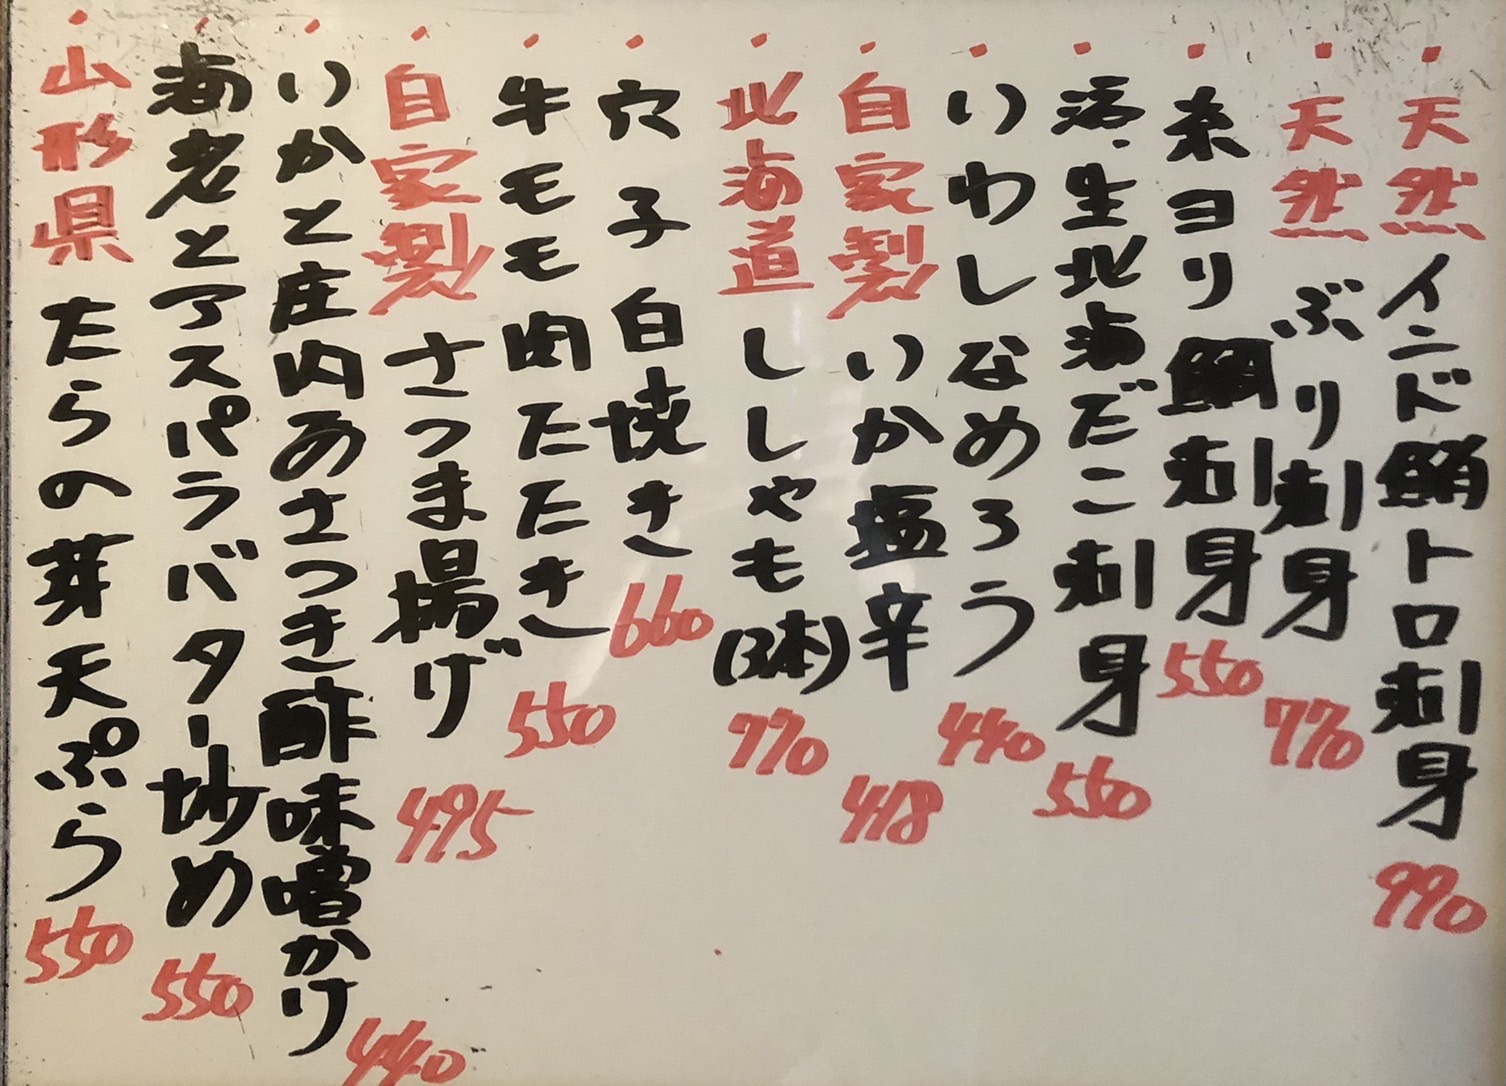 ・天然 インド鮪トロ刺身 990
・天然 ぶり刺身 770
・糸ヨリ鯛刺身 550
・活・生北海だこ刺身 550
・いわしなめろう 440
・自家製 いか塩辛 418
・北海道 ししゃも(3本) 770
・穴子白焼き 660
・牛モモ肉たたき 550
・自家製 さつま揚げ 495
・いかと庄内あさつき酢味噌かけ 440
・海老とアスパラバター炒め 550
・山形県 たらの芽天ぷら 550